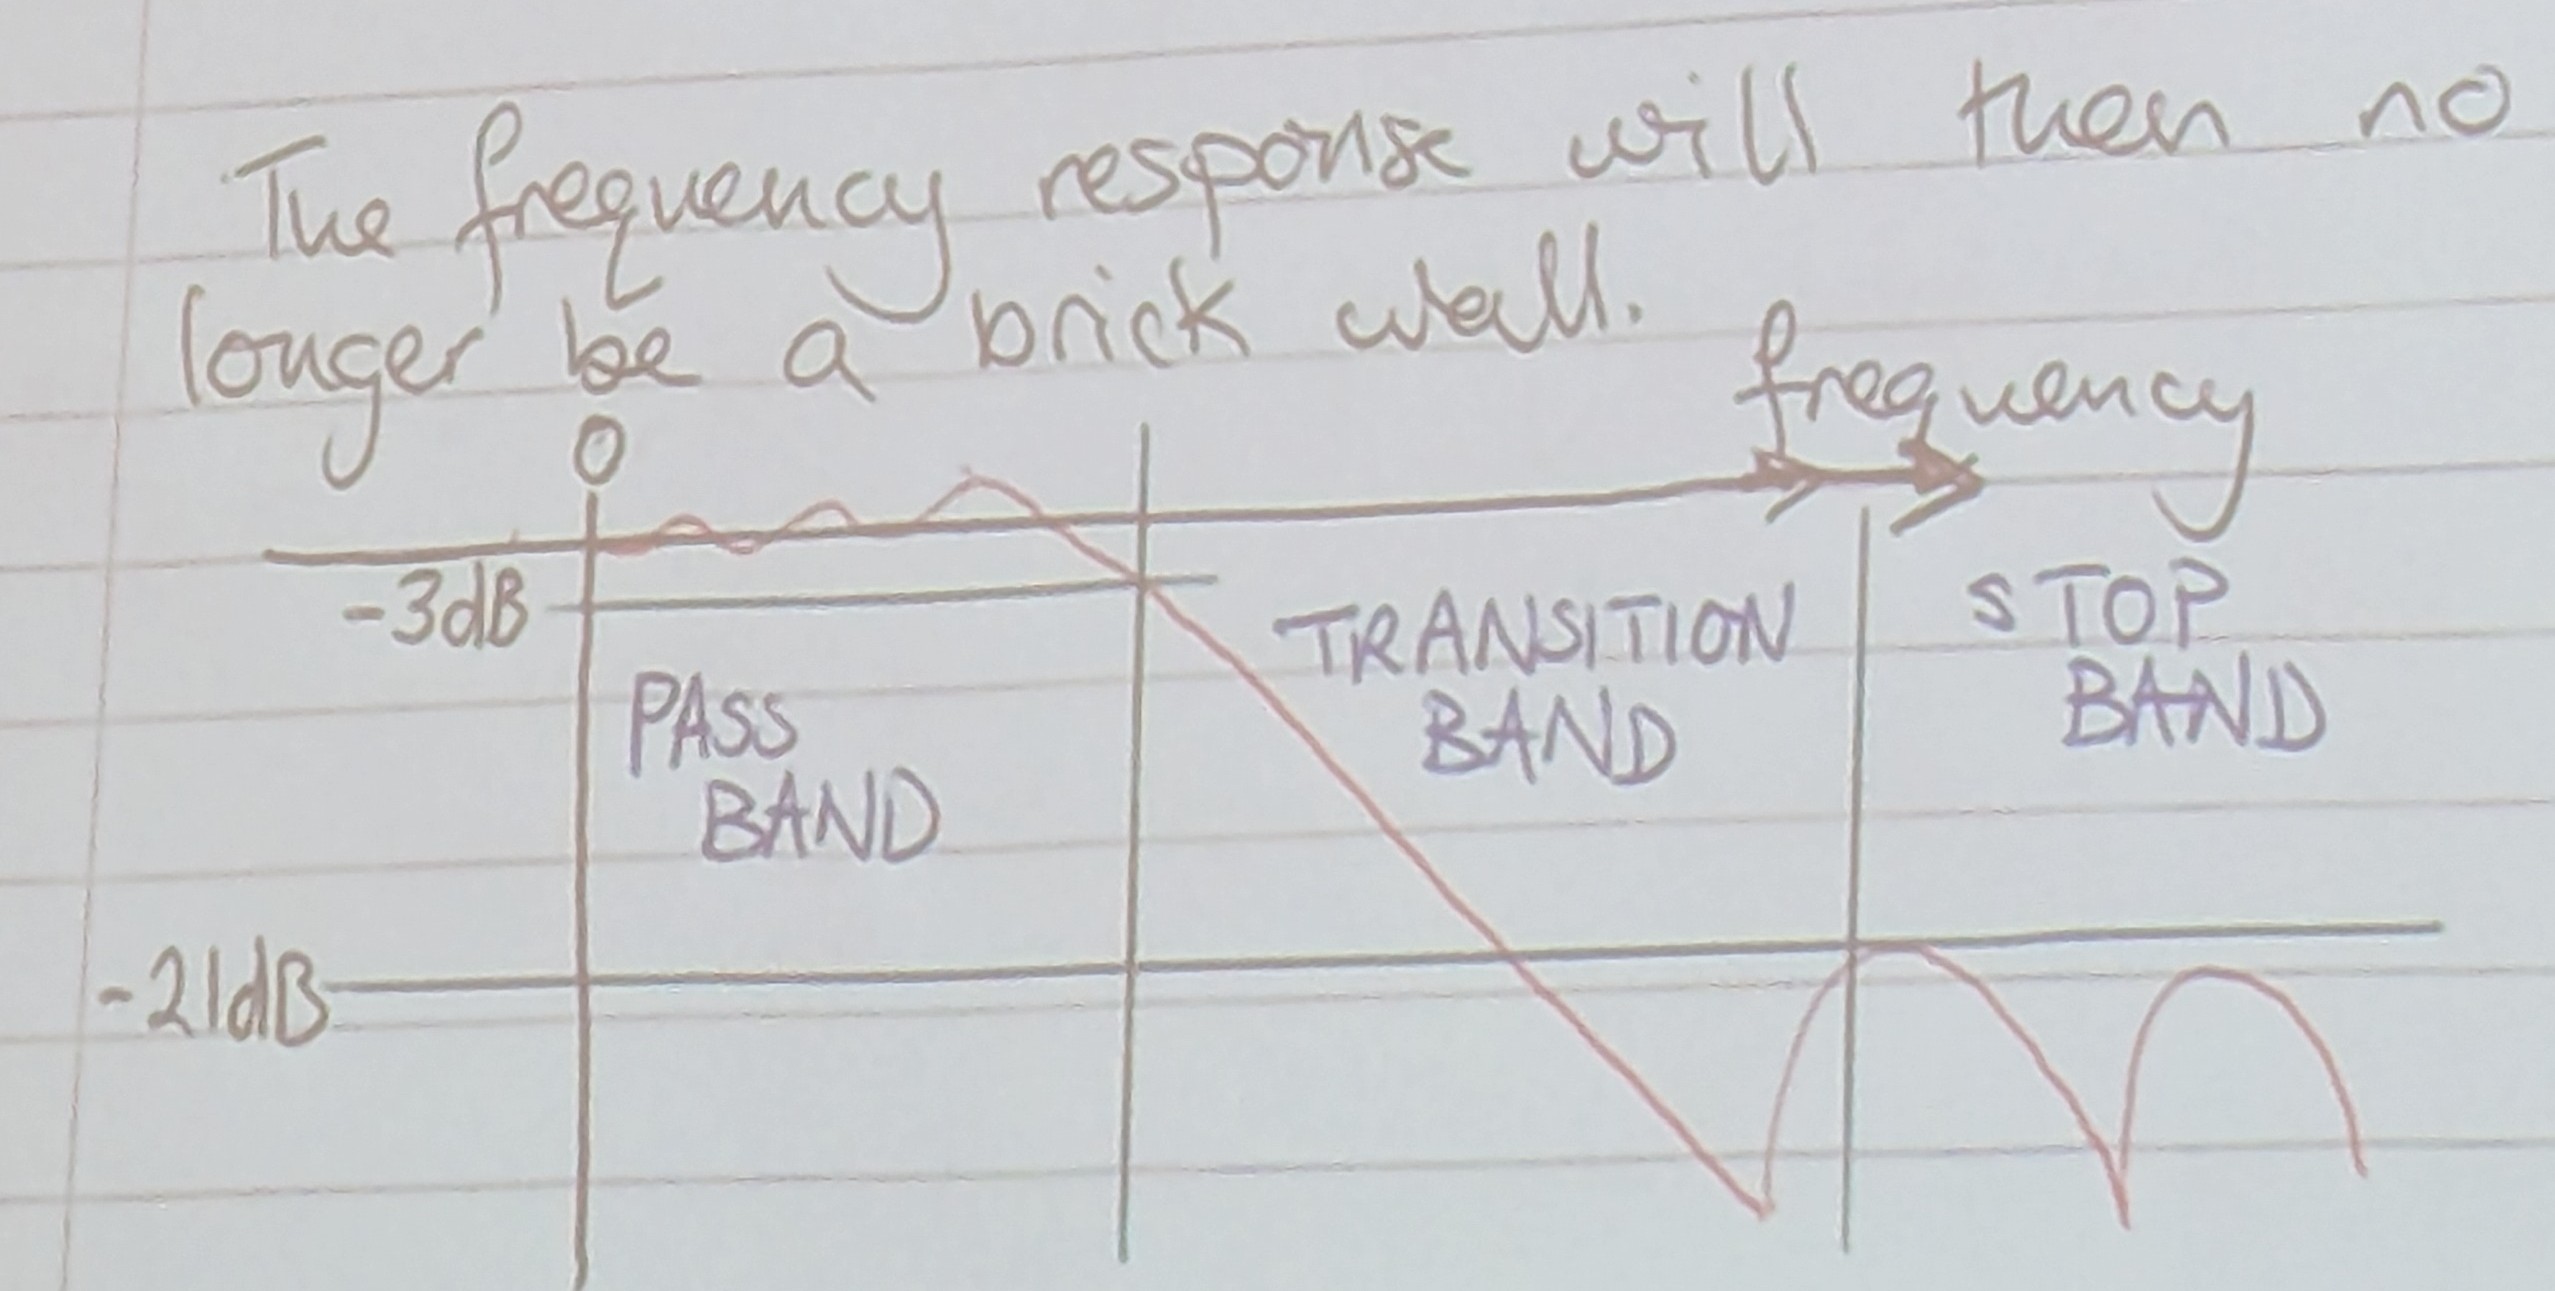 The frequency response will then no
longer be a brick wall.
frequency
0
-3dB
TRANSITION
BAND
STOP
BAND
PASS
BAND
-21dB